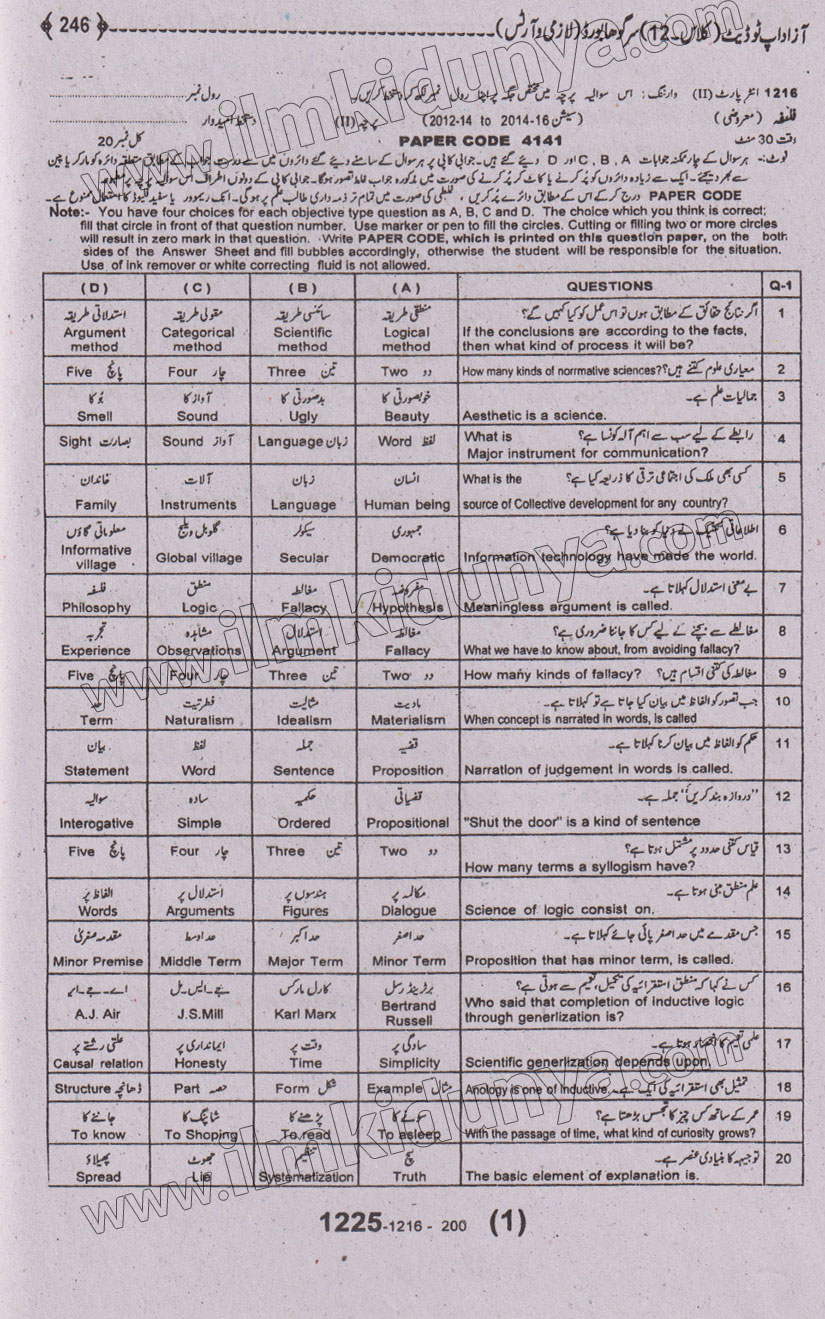 آزاد اپ ٹو ڈیٹ (کلاس۔12) سرگودھا بورڈ (لازمی و آرٹس) ﴿ 246 ﴾
1216 انٹر پارٹ (II) وارننگ: اس سوالیہ پرچہ میں مختص جگہ پر اپنا رول نمبر لکھ کر دستخط کریں۔ رول نمبر
فلسفہ (معروضی) (سیشن 16-2014 to 14-2012) پرچہ (II) دستخط امیدوار
وقت 30 منٹ PAPER CODE 4141 کل نمبر 20
نوٹ:- ہر سوال کے چار ممکنہ جوابات C, B, A اور D دیئے گئے ہیں۔ جوابی کاپی پر ہر سوال کے سامنے دیئے گئے دائروں میں سے درست جواب کے مطابق متعلقہ دائرہ کو مارکر یا پین
سے بھر دیجئے۔ ایک سے زیادہ دائروں کو پُر کرنے یا کاٹ کر پُر کرنے کی صورت میں مذکورہ جواب غلط تصور ہوگا۔ جوابی کاپی کے دونوں اطراف اس سوالیہ پرچہ پر مطبوعہ
PAPER CODE درج کر کے اس کے مطابق دائرے پُر کریں، غلطی کی صورت میں تمام تر ذمہ داری طالب علم پر ہوگی۔ انک ریموور یا سفید فلیوڈ کا استعمال ممنوع ہے۔
Note:- You have four choices for each objective type question as A, B, C and D. The choice which you think is correct;
fill that circle in front of that question number. Use marker or pen to fill the circles. Cutting or filling two or more circles
will result in zero mark in that question. Write PAPER CODE, which is printed on this question paper, on the both
sides of the Answer Sheet and fill bubbles accordingly, otherwise the student will be responsible for the situation.
Use of ink remover or white correcting fluid is not allowed.
(D) (C) (B) (A) QUESTIONS Q-1
استدلالی طریقہ مقولی طریقہ سائنسی طریقہ منطقی طریقہ اگر نتائج حقائق کے مطابق ہوں تو اس عمل کو کیا کہیں گے؟ 1
Argument Categorical Scientific Logical If the conclusions are according to the facts,
method method method method then what kind of process it will be?
Five پانچ Four چار Three تین Two دو How many kinds of norrmative sciences? معیاری علوم کتنے ہیں؟ 2
بُو کا آواز کا بدصورتی کا خوبصورتی کا جمالیات علم ہے۔ 3
Smell Sound Ugly Beauty Aesthetic is a science.
Sight بصارت Sound آواز Language زبان Word لفظ What is رابطے کے لیے سب سے اہم آلہ کونسا ہے؟ 4
Major instrument for communication?
خاندان آلات زبان انسان What is the کسی بھی ملک کی اجتماعی ترقی کا ذریعہ کیا ہے؟ 5
Family Instruments Language Human being source of Collective development for any country?
معلوماتی گاؤں گلوبل ویلج سیکولر جمہوری اطلاعاتی تکنیک نے دنیا کو بنا دیا ہے؟ 6
Informative village Global village Secular Democratic Information technology have made the world.
فلسفہ منطق مغالطہ مفروضہ بے معنی استدلال کہلاتا ہے۔ 7
Philosophy Logic Fallacy Hypothesis Meaningless argument is called.
تجربہ مشاہدہ استدلال مغالطہ مغالطے سے بچنے کے لیے کس کا جاننا ضروری ہے؟ 8
Experience Observations Argument Fallacy What we have to know about, from avoiding fallacy?
Five پانچ Four چار Three تین Two دو How many kinds of fallacy? مغالطہ کی کتنی اقسام ہیں؟ 9
حد فطرتیت مثالیت مادیت جب تصور کو الفاظ میں بیان کیا جاتا ہے تو کہلاتا ہے۔ 10
Term Naturalism Idealism Materialism When concept is narrated in words, is called
بیان لفظ جملہ قضیہ حکم کو الفاظ میں بیان کرنا کہلاتا ہے۔ 11
Statement Word Sentence Proposition Narration of judgement in words is called.
سوالیہ سادہ حکمیہ قضیاتی "دروازہ بند کریں" جملہ ہے۔ 12
Interogative Simple Ordered Propositional "Shut the door" is a kind of sentence
Five پانچ Four چار Three تین Two دو قیاس کتنی حدود پر مشتمل ہوتا ہے؟ 13
How many terms a syllogism have?
الفاظ پر استدلال پر ہندسوں پر مکالمہ پر علم منطق مبنی ہوتا ہے۔ 14
Words Arguments Figures Dialogue Science of logic consist on.
مقدمہ صغریٰ حد اوسط حد اکبر حد اصغر جس مقدمے میں حد اصغر پائی جائے کہلاتا ہے۔ 15
Minor Premise Middle Term Major Term Minor Term Proposition that has minor term, is called.
اے۔جے۔ایر جے۔ایس۔مل کارل مارکس برٹرینڈ رسل کس نے کہا کہ منطق استقرائیہ کی تکمیل، تعمیم سے ہوتی ہے؟ 16
A.J. Air J.S.Mill Karl Marx Bertrand Russell Who said that completion of inductive logic
through generlization is?
علتی رشتے پر ایمانداری پر وقت پر سادگی پر علمی تعمیم کا انحصار ہوتا ہے۔ 17
Causal relation Honesty Time Simplicity Scientific generlization depends upon
Structure ڈھانچہ Part حصہ Form شکل Example مثال Anology is one of Inductive. تمثیل بھی استقرائیہ کی ایک ہے۔ 18
جاننے کا شاپنگ کا پڑھنے کا سونے کا عمر کے ساتھ کس چیز کا تجسس بڑھتا ہے؟ 19
To know To Shoping To read To asleep With the passage of time, what kind of curiosity grows?
پھیلاؤ جھوٹ تنظیم سچ توجیہہ کا بنیادی عنصر ہے۔ 20
Spread Lie Systematization Truth The basic element of explanation is.
1225-1216 - 200 (1)
www.ilmkidunya.com
www.ilmkidunya.com
www.ilmkidunya.com